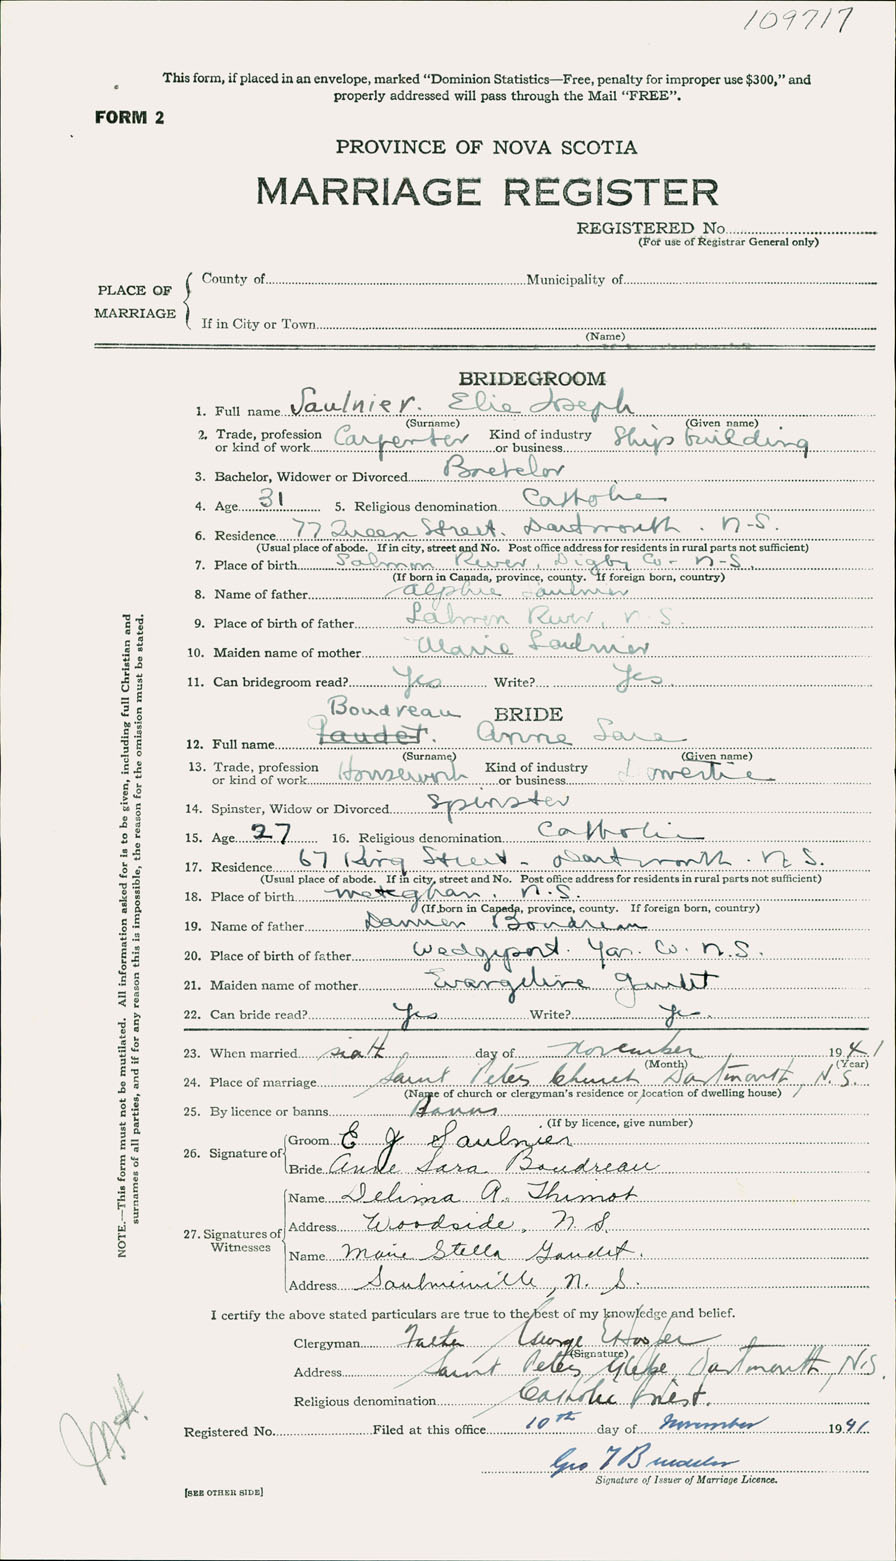 109717
This form, if placed in an envelope, marked “Dominion Statistics—Free, penalty for improper use $300,” and
properly addressed will pass through the Mail “FREE”.
FORM 2
PROVINCE OF NOVA SCOTIA
MARRIAGE REGISTER
REGISTERED No.
(For use of Registrar General only)
PLACE OF MARRIAGE
County of Municipality of
If in City or Town
(Name)
BRIDEGROOM
1. Full name Saulnier. Elie Joseph
(Surname) (Given name)
2. Trade, profession or kind of work Carpenter Kind of industry or business Ship building
3. Bachelor, Widower or Divorced Bretelor
4. Age 31 5. Religious denomination Catholic
6. Residence 77 Queen Street. Dartmouth. N-S.
(Usual place of abode. If in city, street and No. Post office address for residents in rural parts not sufficient)
7. Place of birth Salmon River, Digby Co- N-S.
(If born in Canada, province, county. If foreign born, country)
8. Name of father Alphie Saulnier
9. Place of birth of father Salmon River, N.S.
10. Maiden name of mother Marie Saulnier
11. Can bridegroom read? Yes Write? Yes
Boudreau
BRIDE
12. Full name Gaudet. Anne Sara
(Surname) (Given name)
13. Trade, profession or kind of work Housework Kind of industry or business Domestic
14. Spinster, Widow or Divorced Spinster
15. Age 27 16. Religious denomination Catholic
17. Residence 67 King Street - Dartmouth. N.S.
(Usual place of abode. If in city, street and No. Post office address for residents in rural parts not sufficient)
18. Place of birth Meteghan. N.S.
(If born in Canada, province, county. If foreign born, country)
19. Name of father Damien Boudreau
20. Place of birth of father Wedgeport. Yar. Co. N.S.
21. Maiden name of mother Evangeline Gaudet
22. Can bride read? Yes Write? Yes
23. When married sixth day of November 1941
(Month) (Year)
24. Place of marriage Saint Peters Church Dartmouth, N.S.
(Name of church or clergyman's residence or location of dwelling house)
25. By licence or banns Banns
(If by licence, give number)
26. Signature of
Groom E J Saulnier
Bride Anne Sara Boudreau
27. Signatures of Witnesses
Name Delima A. Thimot
Address Woodside, N.S.
Name Marie Stella Gaudet.
Address Saulnierville, N.S.
I certify the above stated particulars are true to the best of my knowledge and belief.
Clergyman Father George
(Signature)
Address Saint Peters Glebe Dartmouth, N.S.
Religious denomination Catholic Priest.
Registered No. Filed at this office 10th day of November 1941.
Geo
Signature of Issuer of Marriage Licence.
[SEE OTHER SIDE]
NOTE.—This form must not be mutilated. All information asked for is to be given, including full Christian and
surnames of all parties, and if for any reason this is impossible, the reason for the omission must be stated.